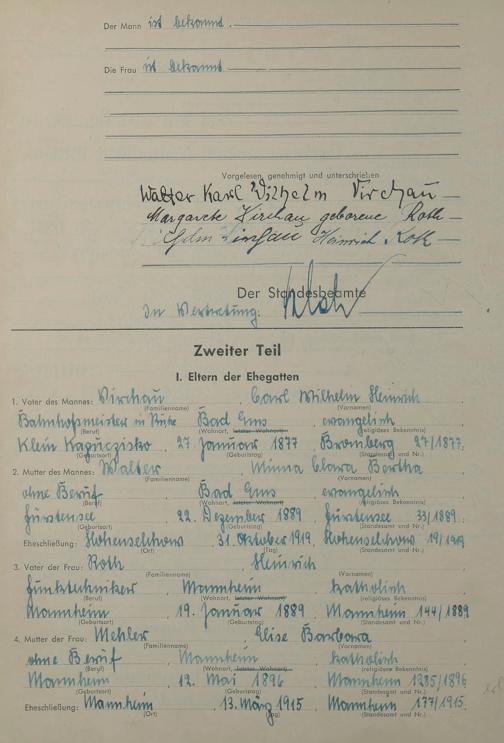 Der Mann ist bekannt.
Die Frau ist bekannt
Vorgelesen, genehmigt und unterschrieben
Walter Karl Wilhelm Virchau
Margarete Virchau geborene Roth
Virchau Heinrich Roth
Der Standesbeamte
In Vertretung:
Zweiter Teil
I. Eltern der Ehegatten
1. Vater des Mannes: Virchau, Carl Wilhelm Heinrich
(Familienname) (Vornamen)
Bahnhofsmeister in Ruhe Bad Ems, evangelisch
(Beruf) (Wohnort, letzter Wohnort) (religiöses Bekenntnis)
Klein Kapuczisko, 27. Januar 1877 Bromberg 27/1877.
(Geburtsort) (Geburtstag) (Standesamt und Nr.)
2. Mutter des Mannes: Walter, Minna Clara Bertha
(Familienname) (Vornamen)
ohne Beruf, Bad Ems, evangelisch
(Beruf) (Wohnort, letzter Wohnort) (religiöses Bekenntnis)
Fürstensee, 22. Dezember 1889, Fürstensee 33/1889.
(Geburtsort) (Geburtstag) (Standesamt und Nr.)
Eheschließung: Hohenselchow, 31. Oktober 1919, Hohenselchow 19/1919
(Ort) (Tag) (Standesamt und Nr.)
3. Vater der Frau: Roth, Heinrich
(Familienname) (Vornamen)
Funktechniker, Mannheim, katholisch
(Beruf) (Wohnort, letzter Wohnort) (religiöses Bekenntnis)
Mannheim, 19. Januar 1889, Mannheim 144/1889
(Geburtsort) (Geburtstag) (Standesamt und Nr.)
4. Mutter der Frau: Mehler, Elise Barbara
(Familienname) (Vornamen)
ohne Beruf, Mannheim, katholisch
(Beruf) (Wohnort, letzter Wohnort) (religiöses Bekenntnis)
Mannheim, 12. Mai 1896, Mannheim 1285/1896
(Geburtsort) (Geburtstag) (Standesamt und Nr.)
Eheschließung: Mannheim, 13. März 1915, Mannheim 177/1915.
(Ort) (Tag) (Standesamt und Nr.)